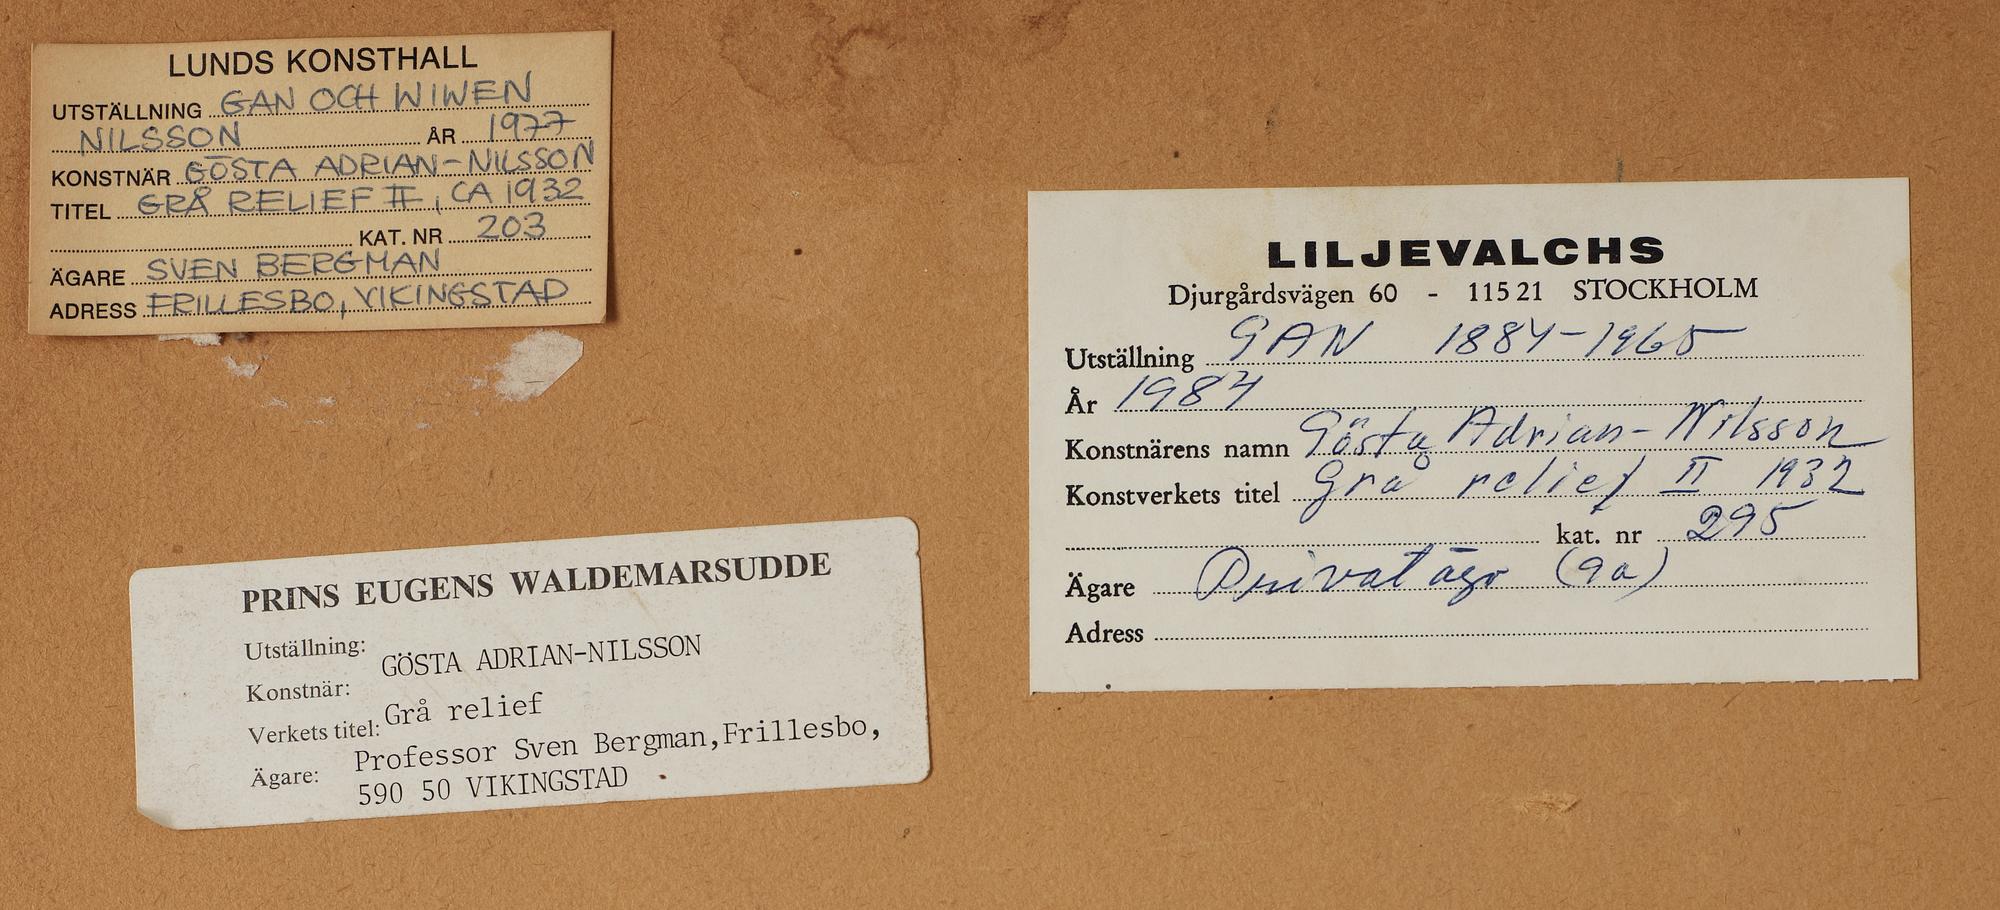 LUNDS KONSTHALL
UTSTÄLLNING GAN OCH WIWEN
NILSSON ÅR 1977
KONSTNÄR GÖSTA ADRIAN-NILSSON
TITEL GRÅ RELIEF II, CA 1932
KAT. NR 203
ÄGARE SVEN BERGMAN
ADRESS FRILLESBO, VIKINGSTAD
PRINS EUGENS WALDEMARSUDDE
Utställning:
GÖSTA ADRIAN-NILSSON
Konstnär:
Verkets titel: Grå relief
Ägare: Professor Sven Bergman,Frillesbo,
590 50 VIKINGSTAD
LILJEVALCHS
Djurgårdsvägen 60 - 115 21 STOCKHOLM
Utställning GAN 1884-1965
År 1984
Konstnärens namn Gösta Adrian-Nilsson
Konstverkets titel Grå relief II 1932
kat. nr 295
Ägare Privat ägo (9a)
Adress